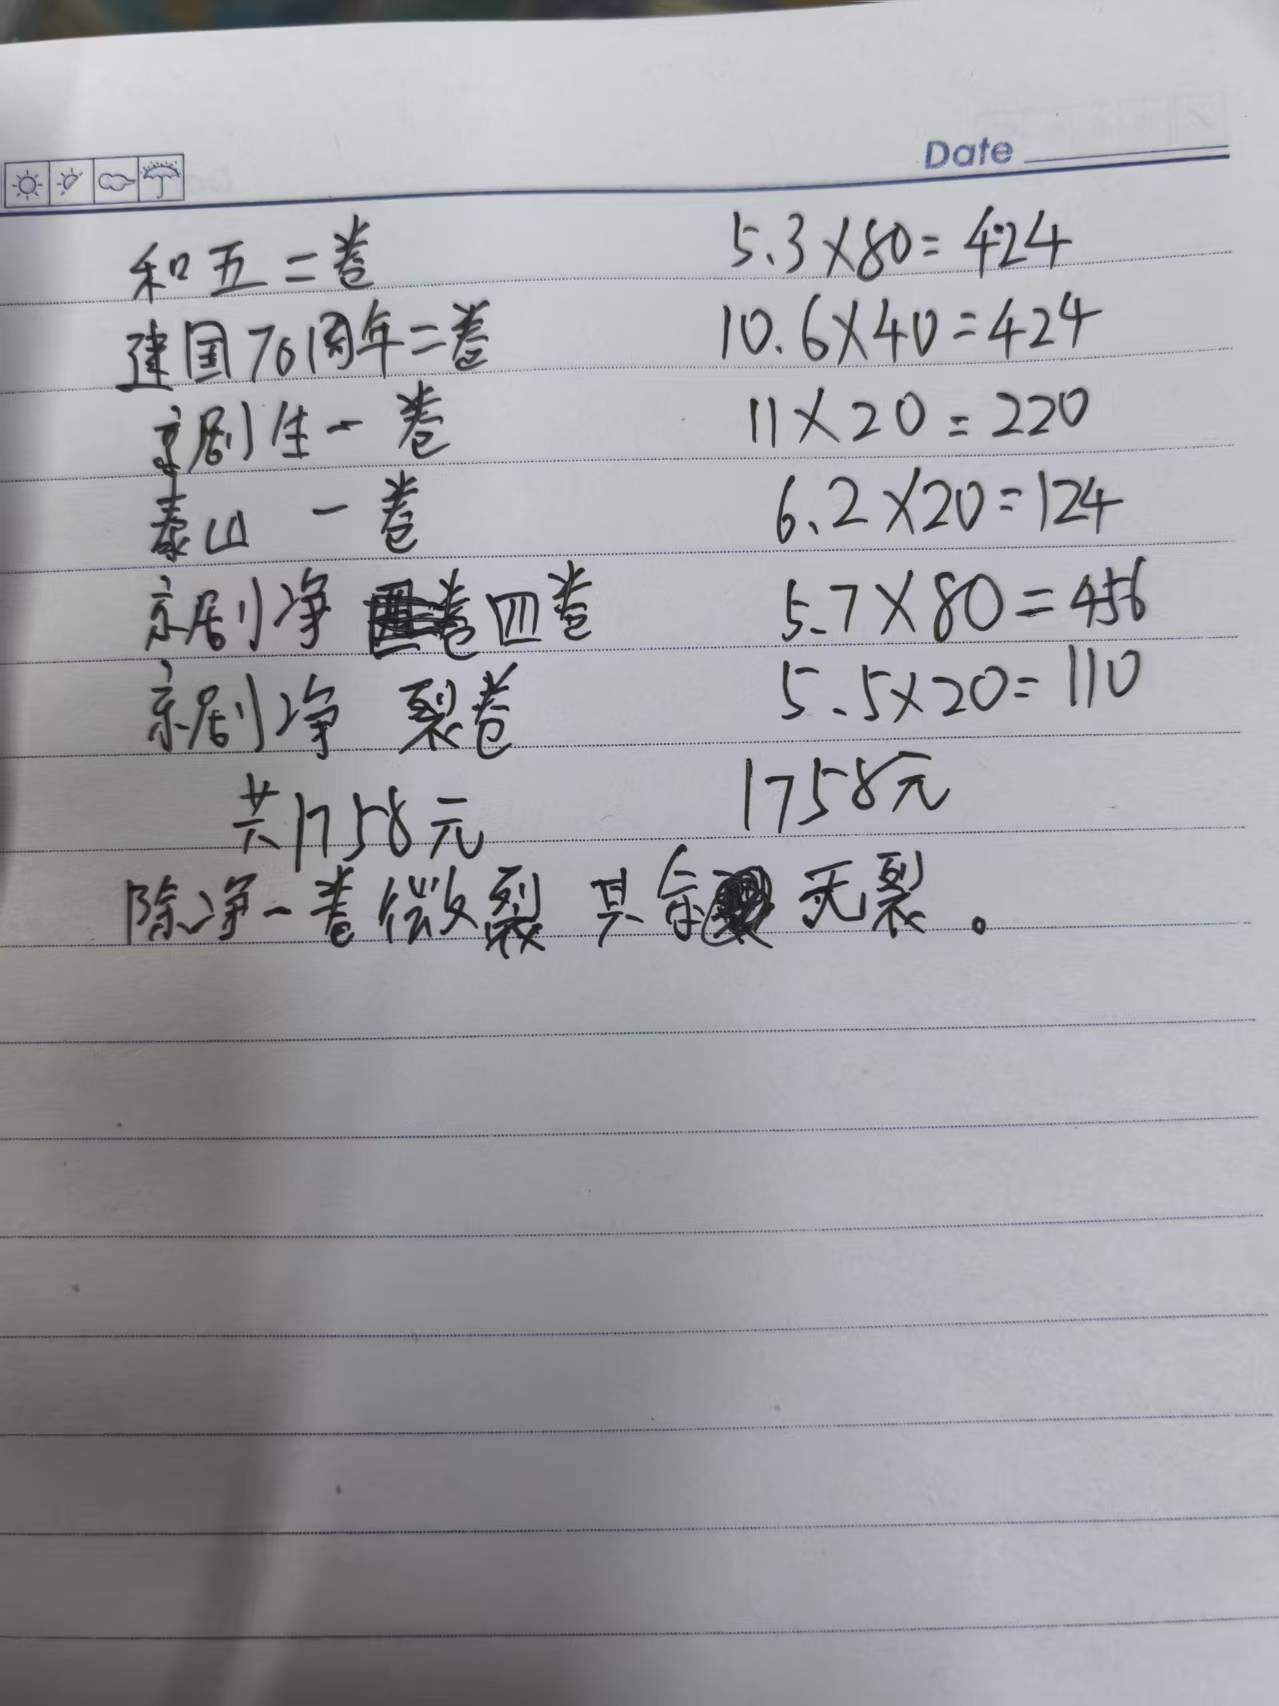 Date
和五二卷 5.3×80=424
建国70周年二卷 10.6×40=424
京剧生一卷 11×20=220
泰山 一卷 6.2×20=124
京剧净 四卷 5.7×80=456
京剧净 裂卷 5.5×20=110
共1758元 1758元
除净一卷微裂 其余 无裂。